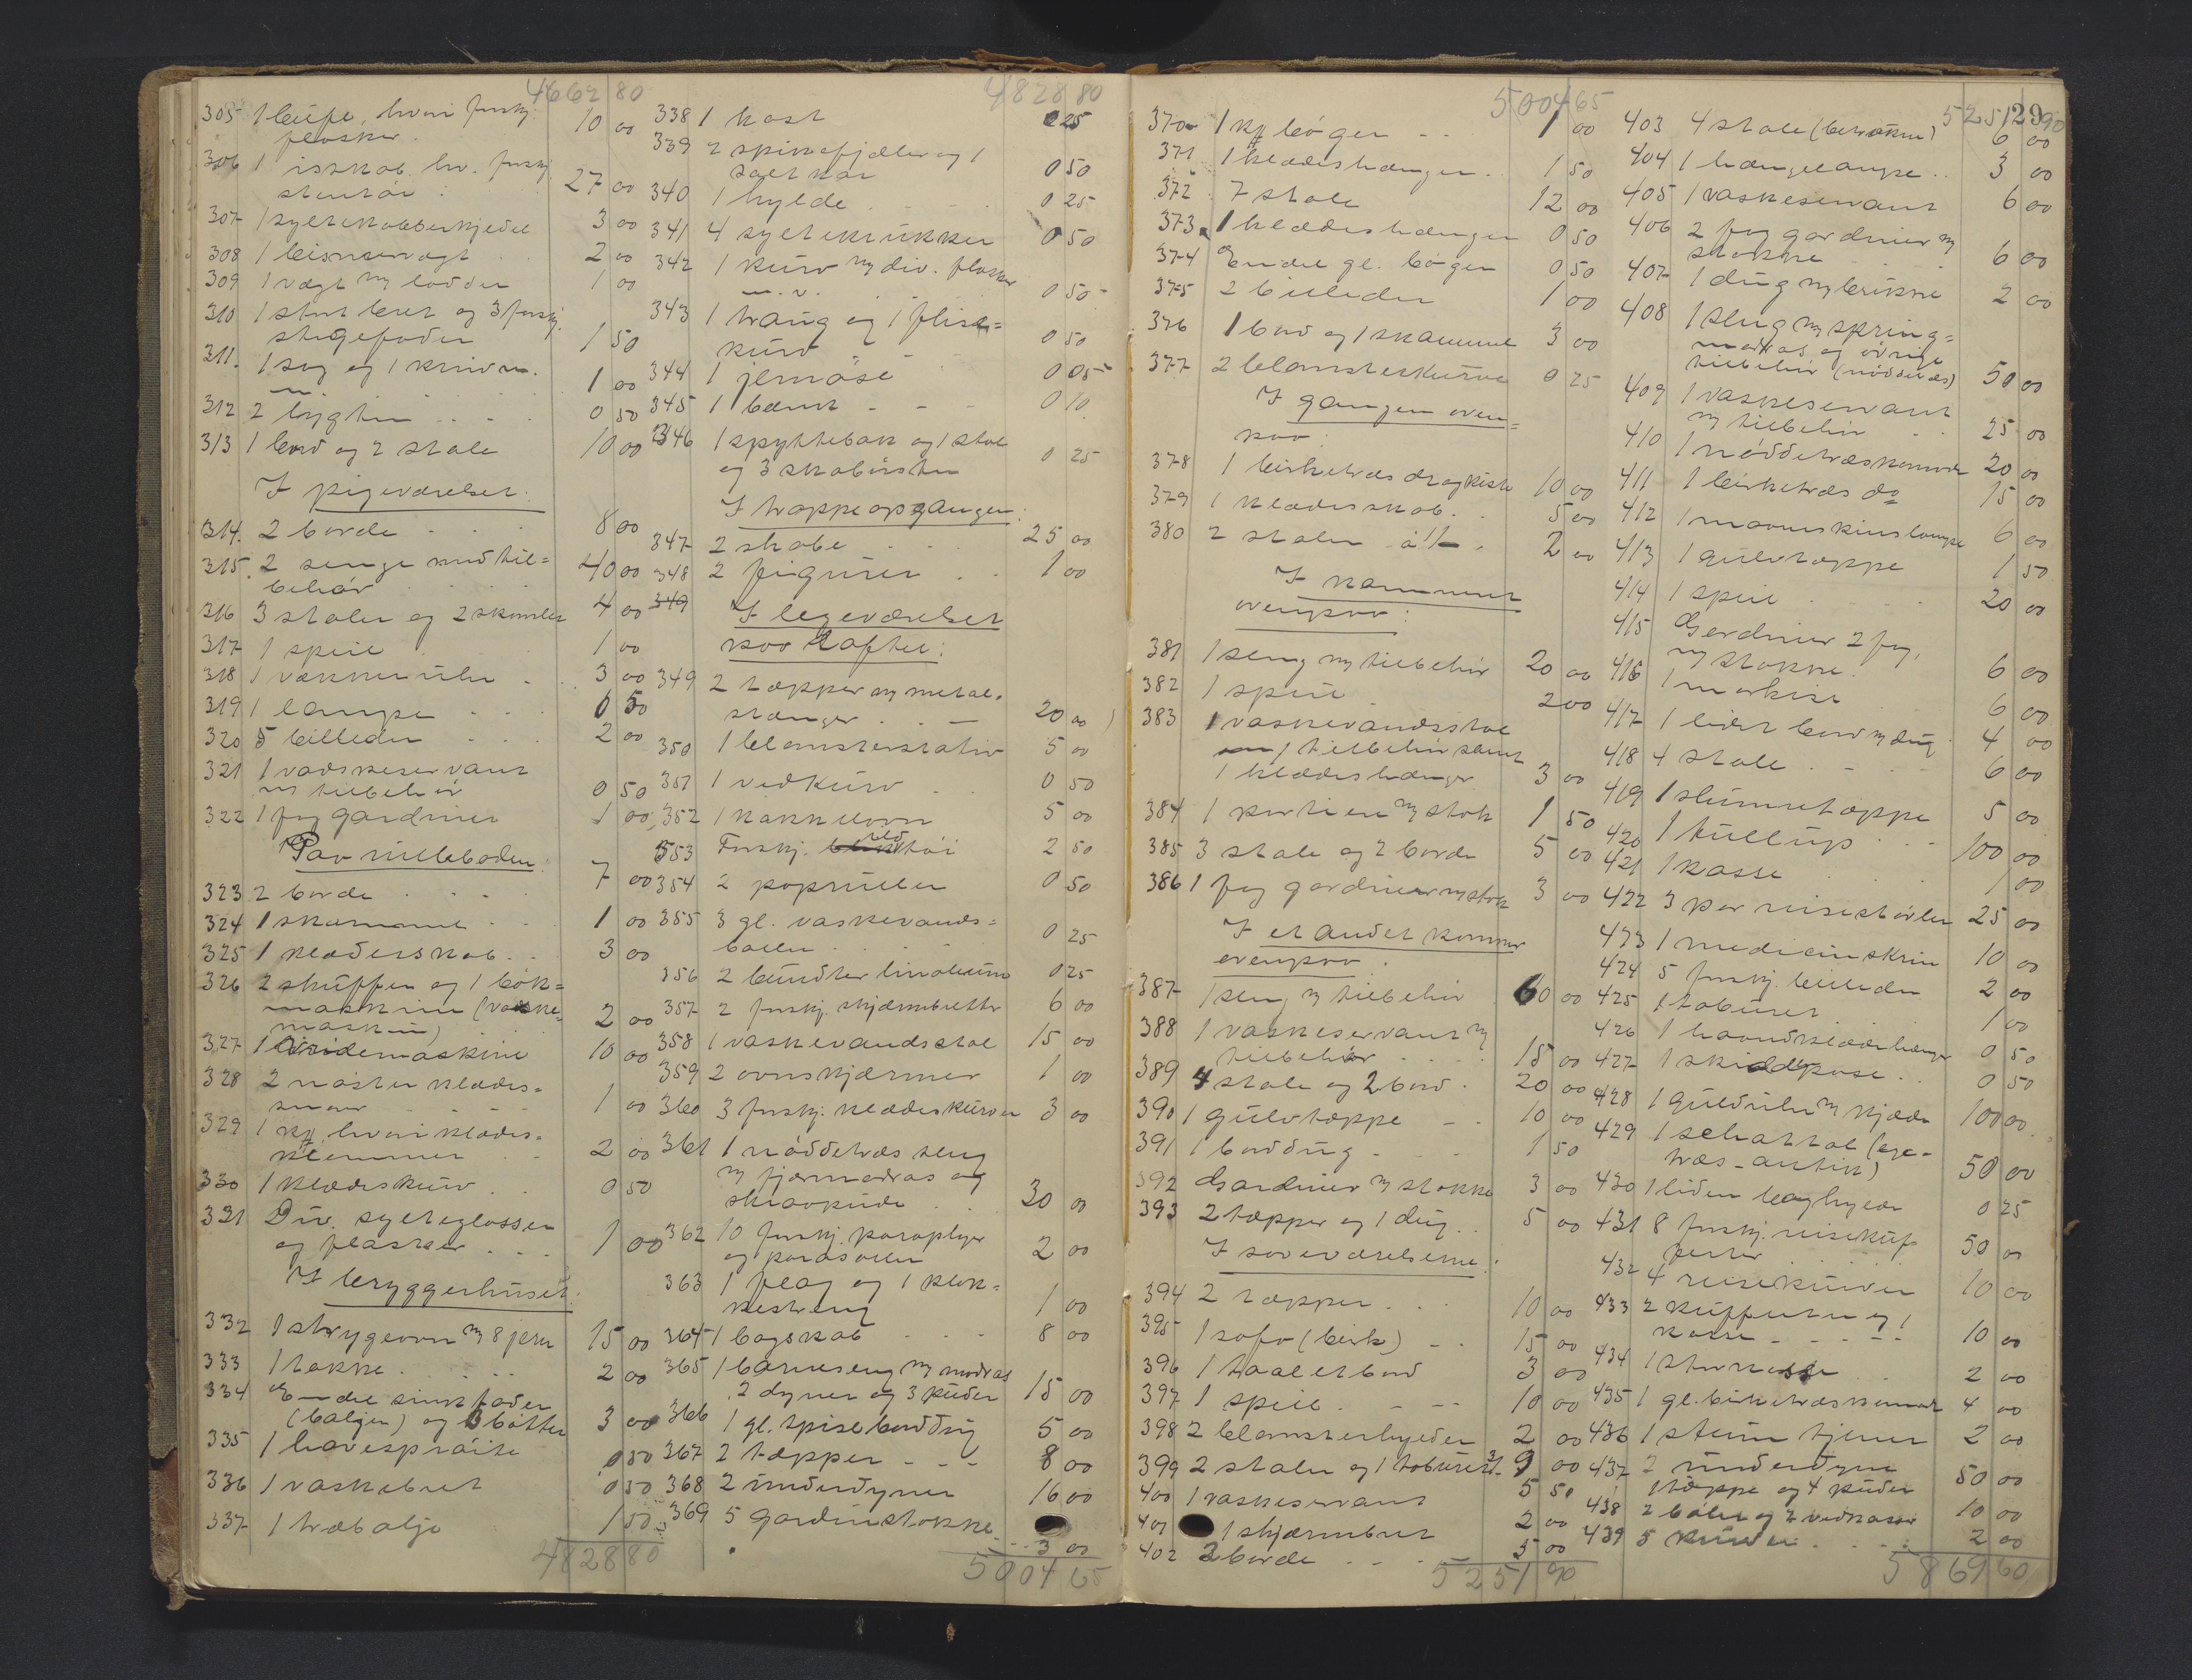 4662 80
305 1 beite, hvori forskj.
flasker. 10 00
306 1 isskab, hv. forskj.
stentöi 27 00
307 1 syltekobberkjedel 3 00
308 1 bismervægt 2 00
309 1 vægt m lodder 1 00
310 1 stort bret og 3 forskj.
stegefader 1 50
311. 1 sag og 1 kniv m.
m. 1 00
312 2 lygter 0 50
313 1 bord og 2 stole 10 00
I pigeværelset:
314. 2 borde 8 00
315. 2 senge med til=
behör 40 00
316 3 stoler og 2 skamler 4 00
317 1 speil 1 00
318 1 vækkerur 3 00
319 1 lampe 0 50
320 5 billeder 2 00
321 1 vadskeservant
m tilbehör 0 50
322 1 fag gardiner 1 00
Paa rulleboden:
323 2 borde 7 00
324 1 skammel 1 00
325 1 klæderskab 3 00
326 2 skuffer og 1 bök=
maskin (vaske=
maskin) 2 00
327 1 vridemaskine 10 00
328 2 nöster klædes=
snor 1 00
329 1 kf. hvori klædes=
klemmer 2 00
330 1 klædeskurv 0 50
331 Div. sylteglasser
og flasker 1 00
I bryggerhuset:
332 1 strygeovn m 8 jern 15 00
333 1 takke 2 00
334 En del sinkfader
(baljer) og 3 bötter 3 00
335 1 havespröite 0 50
336 1 vaskebret 0 50
337 1 træbalje 1 50
4828 80
4828 80
338 1 kost 0 25
339 2 spikefjæler og 1
saltkar 0 50
340 1 hylde 0 25
341 4 syltekrukker 0 50
342 1 kurv m div. flasker
m. v. 0 50
343 1 traug og 1 flise=
kurv 0 50
344 1 jernöse 0 05
345 1 bænk 0 10
346 1 spyttebak og 1 stol
og 3 skobörster 0 25
I trappeopgangen:
347 2 skabe 25 00
348 2 figurer 1 00
349 I legeværelset
paa loftet:
349 2 tæpper m metal=
stænger 20 00
350 1 blomsterstativ 5 00
351 1 vedkurv 0 50
352 1 kakkelovn 5 00
353 Forskj. töi 2 50
354 2 papruller 0 50
355 3 gl. vaskevands=
boller 0 25
356 2 bundter linoleum 0 25
357 2 forskj. skjærmbretter 6 00
358 1 vaskevandsstol 15 00
359 2 ovnskjærmer 1 00
360 3 forskj. klædeskurver 3 00
361 1 nöddetræs seng
m fjærmadras og
skraapude 30 00
362 10 forskj. paraplyer
og parasoller 2 00
363 1 flag og 1 klok=
kestreng 1 00
364 1 bogskab 8 00
365 1 barneseng m madras
2 dyner og 3 puder 15 00
366 1 gl. spisebordsdug 5 00
367 2 tæpper 8 00
368 2 underdyner 16 00
369 5 gardinstokke
3 00
5004 65
5004 65
370 1 kf böger 1 00
371 1 klædeshænger 1 50
372 7 stole 12 00
373 1 klædeshænger 0 50
374 Endel gl. böger 0 50
375 2 billeder 1 00
376 1 bord og 1 skammel 3 00
377 2 blomsterkurve 0 25
I gangen oven=
paa:
378 1 birketræs dragkiste 10 00
379 1 klædesskab 5 00
380 2 stoler á 1/- 2 00
I kammeret
ovenpaa:
381 1 seng m tilbehör 20 00
382 1 speil 2 00
383 1 vaskevandsstol
m tilbehör samt
1 klædeshænger 3 00
384 1 portiere m stok 1 50
385 3 stole og 2 borde 5 00
386 1 fag gardiner m stok 3 00
I et andet kammer
ovenpaa:
387 1 seng m tilbehör 60 00
388 1 vaskeservant m
tilbehör 15 00
389 4 stole og 2 bord 20 00
390 1 gulvtæppe 10 00
391 1 borddug 1 50
392 Gardiner m stokke 3 00
393 2 tæpper og 1 dug 5 00
I soveværelserne:
394 2 tæpper 10 00
395 1 sofa (birk) 15 00
396 1 toaletbord 3 00
397 1 speil 10 00
398 2 blomsterhylder 2 00
399 2 stoler og 1 taburet 9 00
400 1 vaskeservant 5 50
401 1 skjærmbret 2 00
402 2 borde 5 00
5251 90
5251 90
129
403 4 stole (betrukne) 6 00
404 1 hængelampe 3 00
405 1 vaskeservant 6 00
406 2 fag gardiner m
stokke 6 00
407 1 dug m brikke 2 00
408 1 seng m spring=
madras og övrige
tilbehör (nöddetræs) 50 00
409 1 vaskeservant
m tilbehör 25 00
410 1 nöddetræskomode 20 00
411 1 birketræs do 15 00
412 1 maaneskinslampe 6 00
413 1 gulvtæppe 1 50
414 1 speil 20 00
415 Gardiner 2 fag,
m stokke 6 00
416 1 markise 6 00
417 1 lidet bord m dug 4 00
418 4 stole 6 00
419 1 slumretæppe 5 00
420 1 tullup 100 00
421 1 kasse 1 00
422 3 par reisestövler 25 00
423 1 medicinskrin 10 00
424 5 forskj. billeder 2 00
425 1 taburet 1 00
426 1 haandklædehænger 0 50
427 1 skiddepose 0 50
428 1 guldur m kjæde 100 00
429 1 schattol (ege-
træs-antik) 50 00
430 1 liden boghylde 0 25
431 8 forskj. reisekuf
ferter 50 00
432 4 reisekurver 10 00
433 2 kufferter og 1
kasse 10 00
434 1 stor kasse 2 00
435 1 gl. birketræskomode 4 00
436 1 stum tjener 2 00
437 2 underdyne
1 tæppe og 4 puder 50 00
438 2 boler og 2 vedkasser 10 00
439 5 kurver 2 00
5869 60